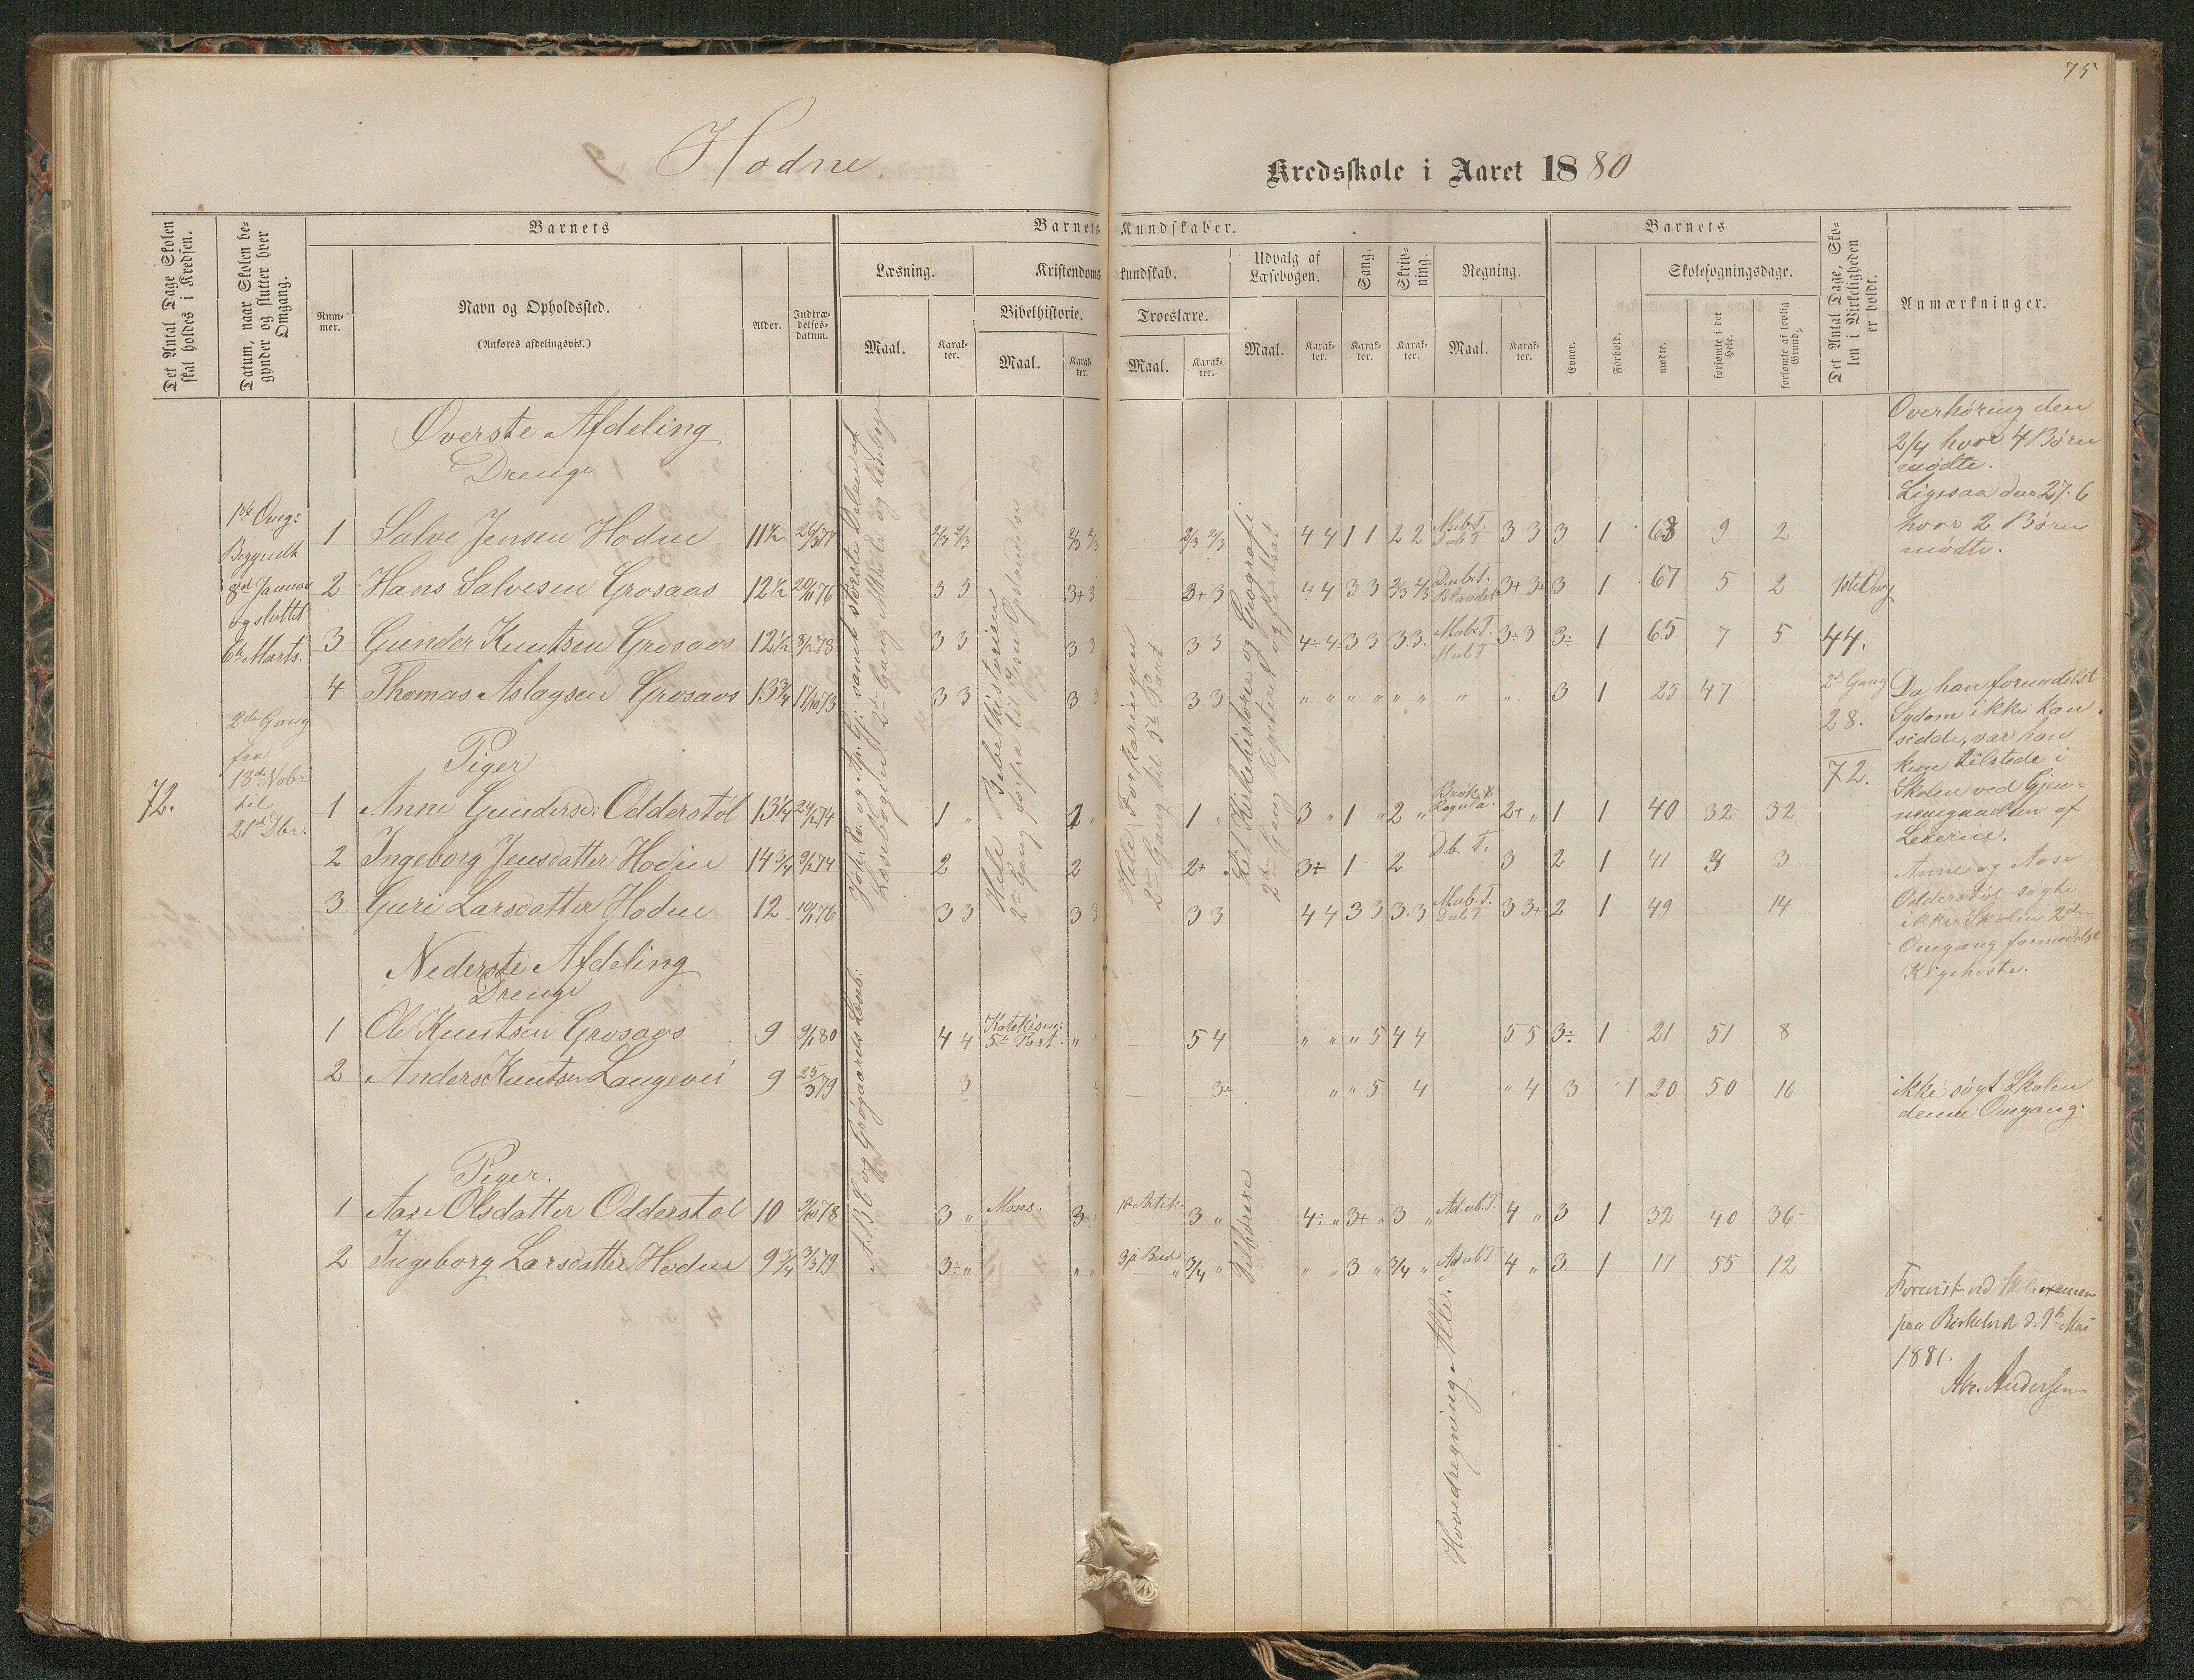 75
Hodne.
Kredsskole i Aaret 1880
Det Antal Dage Skolen skal holdes i Kredsen.
Datum, naar Skolen begynder og slutter hver Omgang.
Barnets
Nummer.
Navn og Opholdssted.
(Anføres afdelingsvis.)
Alder.
Indtrædelsesdatum.
Barnets Kundskaber.
Læsning.
Maal.
Karakter.
Kristendomskundskab.
Bibelhistorie.
Maal.
Karakter.
Troeslære.
Maal.
Karakter.
Udvalg af Læsebogen.
Maal.
Karakter.
Sang.
Karakter.
Skrivning.
Karakter.
Regning.
Maal.
Karakter.
Barnets
Evner.
Forhold.
Skolesøgningsdage.
mødte.
forsømte i det Hele.
forsømte af lovlig Grund.
Det Antal Dage, Skolen i Virkeligheden er holdt.
Anmærkninger.
Øverste Afdeling
Drenge
1 Salve Jensen Hodne 11½ 2/3 2/3 2/3 2/3 2/3 2/3 4 4 1 1 2 2 3 3 3 1 68 9 2
2 Hans Salvesen Grosaas 12½ 3 3 3+ 3 3+ 3 4 4 3 3 2/3 2/3 Blandet 3+ 3+ 3 1 67 5 2
3 Gunder Knutsen Grosaas 12½ 3 3 3 3 3 3 4÷ 4÷ 3 3 3. 3. 3÷ 3 3÷ 1 65 7 5
4 Thomas Aslagsen Grosaas 13¾ 17/10 73 3 3 3 3 3 3 " " " " " " " " 3 1 25 47
Piger
1 Anne Gundersd: Odderstøl 13¼ 1 " 1 " 1 " 3 " 1 " 2 " Brøk & Regula. 2+ " 1 1 40 32 32
2 Ingeborg Jensdatter Hodne 14¾ 2 2 2+ 3÷ 1 2 D.b. T. 3 2 1 41 3
3 Guri Larsdatter Hodne 12 3 3 3 3 3 3 4 4 3 3 3. 3 3 3+ 2 1 49 14
Nederste Afdeling
Drenge
1 Ole Knutsen Grosaas 9 4 4 5te Part. " 5 4 " " " 5 4 4 5 5 3÷ 1 21 51 8
2 Anders Knutsen Langevei 9 25/3 79 3 3÷ " " 5 4 " 4 3 1 20 50 16
Piger.
1 Aase Olsdatter Odderstøl 10 3 " Moses. 3 3 " 4÷ " 3+ " 3 " 4 " 3 1 32 40 36
2 Ingeborg Larsdatter Hodne 9¾ 3/3 79 3÷ " " " 3die Bud 3/4 " " " 3 " 3/4 " 4 " 3. 1 17 55 12
72.
1ste Omg:
Begyndt
8de Januar
og sluttet
6te Marts.
2den Gang
fra
13de Nobr
til
21de Dbr.
A.B.C og Grøgaards Læseb:
2den Gang
Hele Bibelhistorien
Hele Forklaringen
2den Gang til 5te Part
Kirkehistorie og Geografi
2den Gang
Tilhørere
Hovedregning Alle.
1ste Omg
44.
2den Gang
28.
72.
Overhøring den
2/4 hvor 4 Børn
mødte.
Ligesaa den 27. 6
hvor 2 Børn
mødte.
Da han formedelst
Sygdom ikke kan
sidde, var han
kun tilstede i
Skolen ved Gjen-
nemgaaelsen af
Lexerne.
Anne og Aase
Odderstøl søgte
ikke Skolen 2den
Omgang formedelst
Kighoste.
ikke søgt Skolen
denne Omgang.
Forevist ved Skoleexamen
paa Birkeland d. 9de Mai
1881.
Abr. Andersen